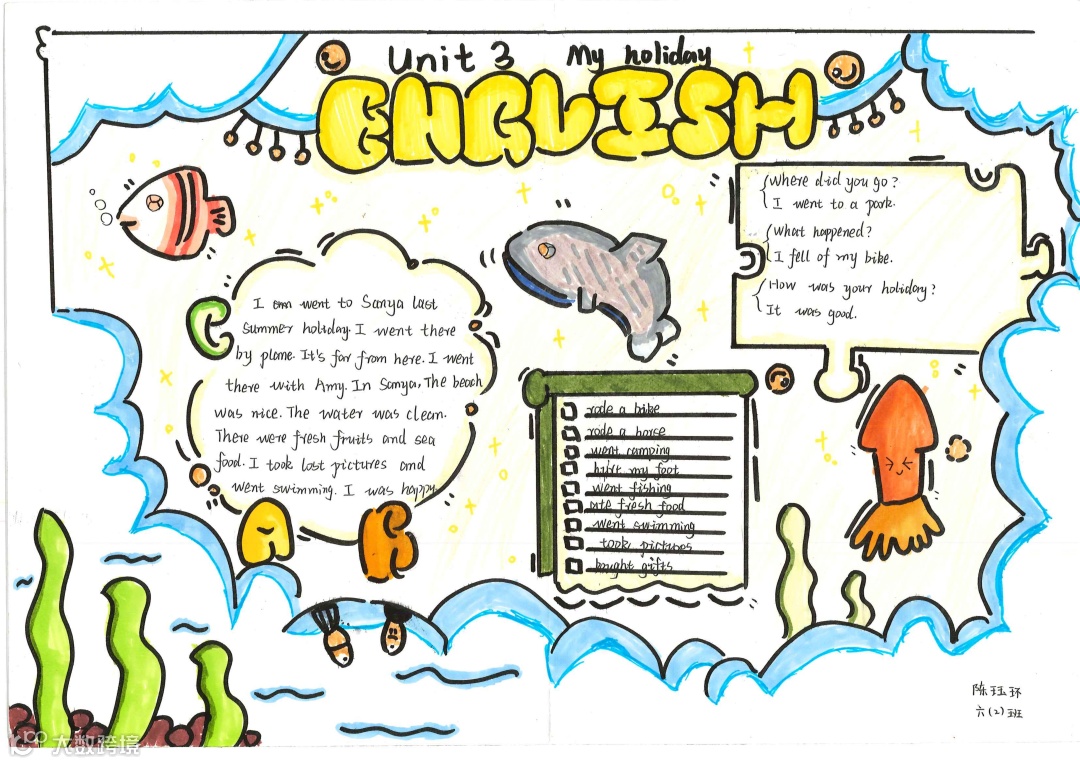 Unit 3 My holiday
ENGLISH
Where did you go?
I went to a park.
What happened?
I fell of my bike.
How was your holiday?
It was good.
C
I am went to Sanya last
summer holiday. I went there
by plane. It's far from here. I went
there with Amy. In Sanya, The beach
was nice. The water was clean.
There were fresh fruits and sea
food. I took lost pictures and
went swimming. I was happy
A B
rode a bike
rode a horse
went camping
hurt my foot
went fishing
ate fresh food
went swimming
took pictures
bought gifts
陈珏环
六(2)班
大数跨境